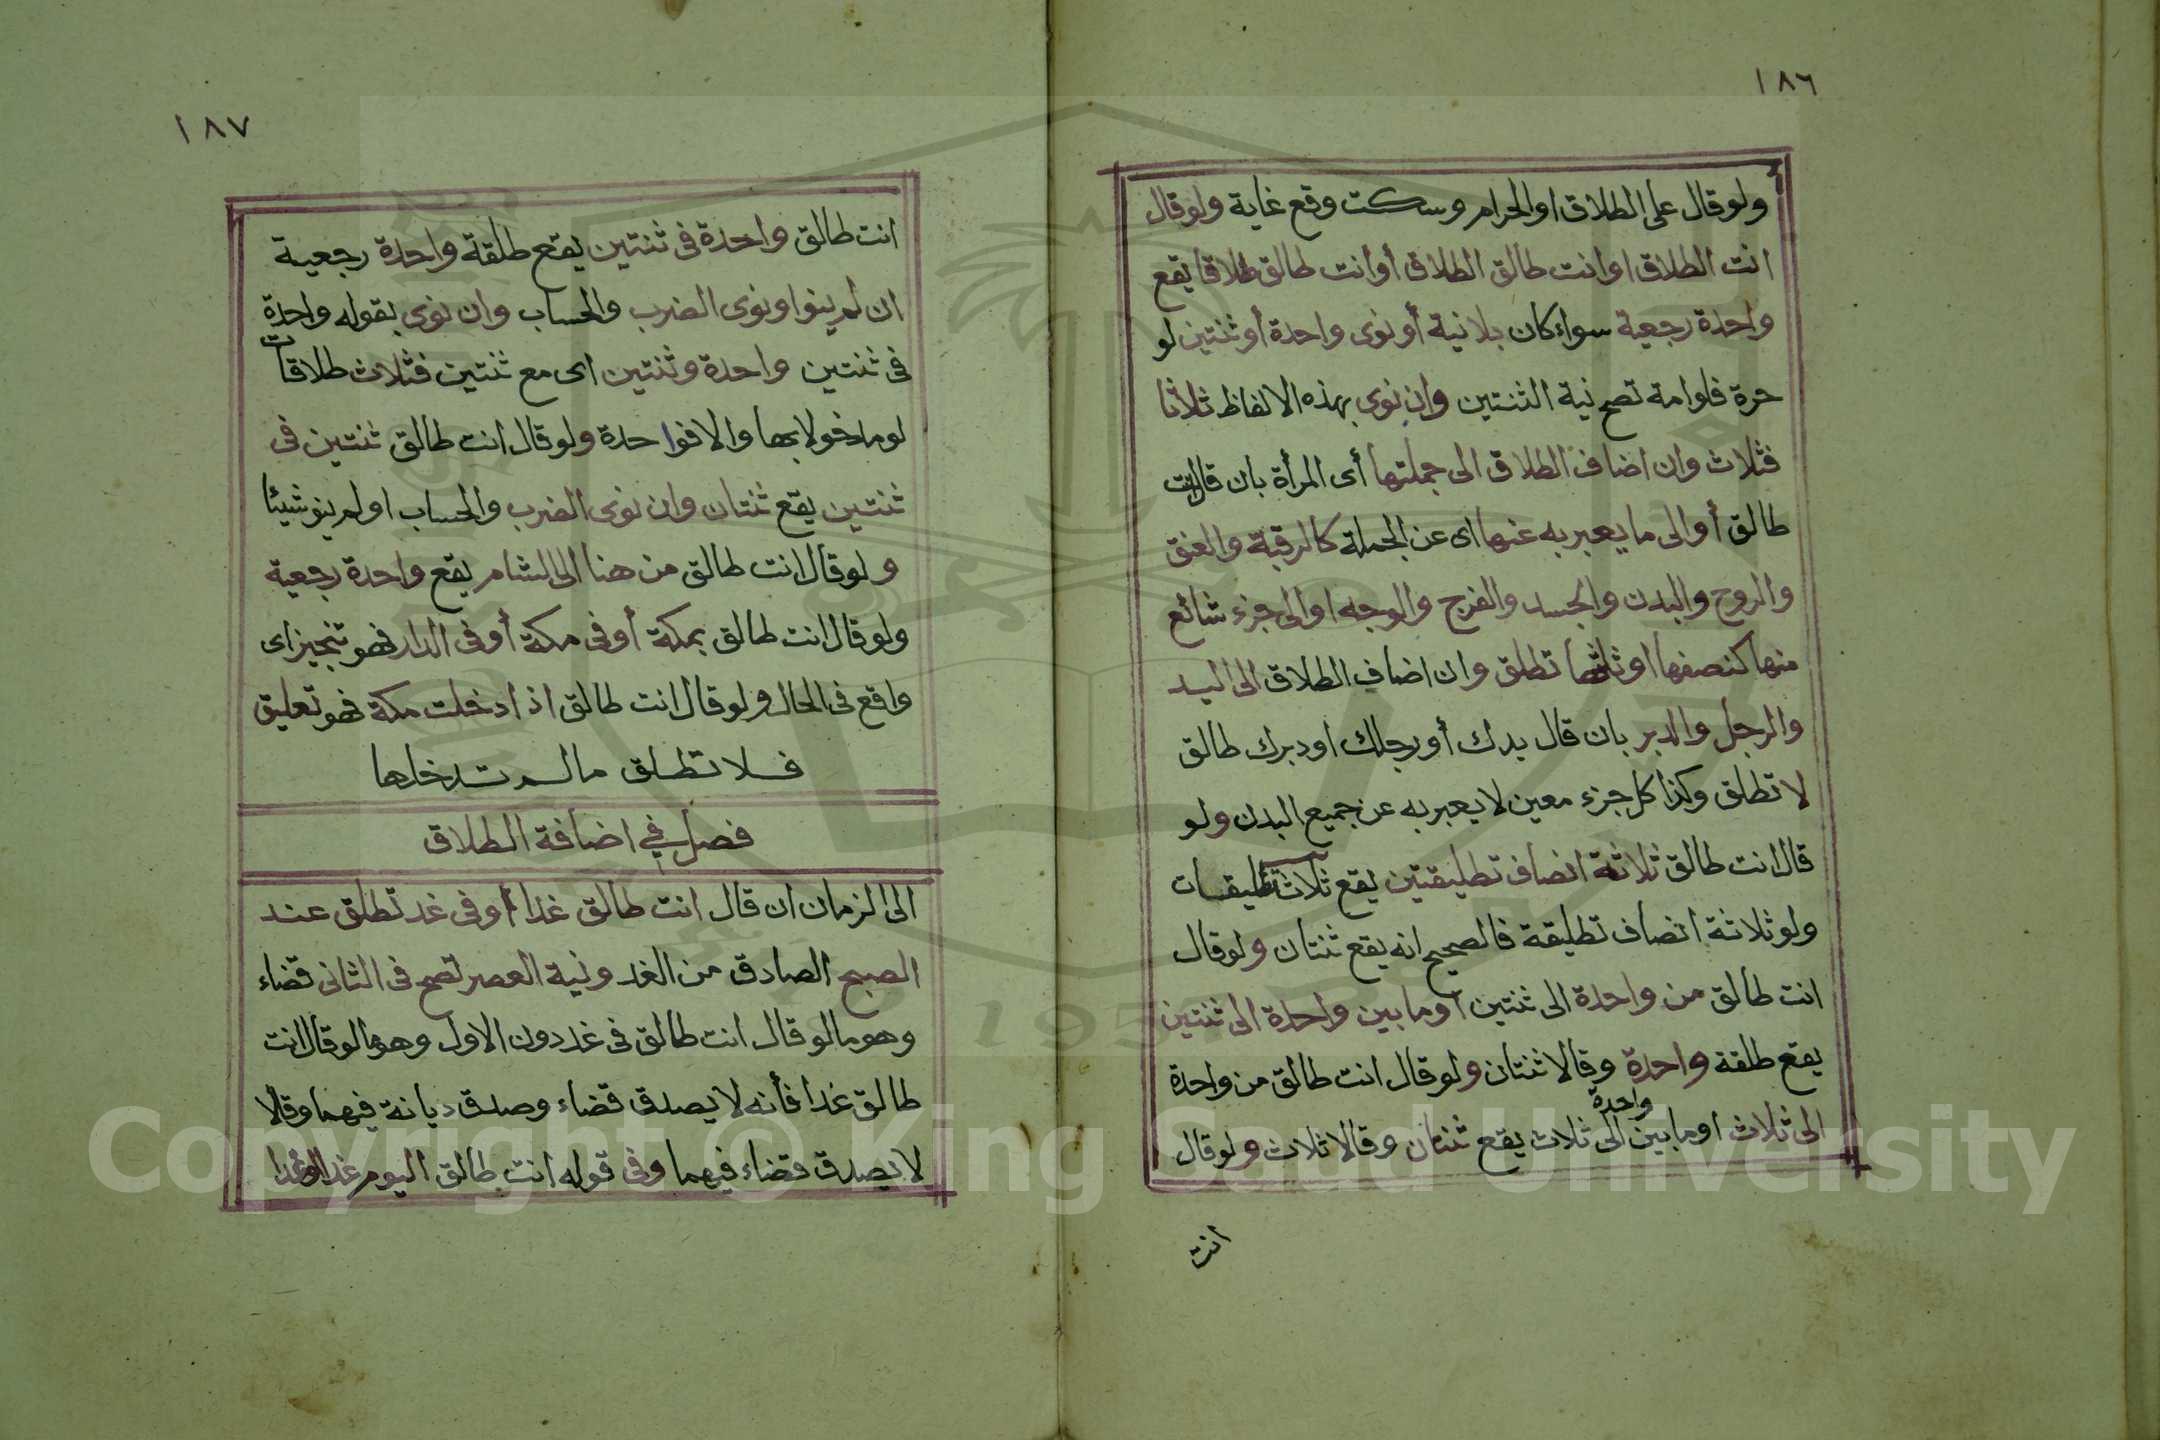 ١٨٦
ولو قال على الطلاق او الحرام وسكت وقع غاية ولو قال
انت الطلاق او انت طالق الطلاق أو انت طالق طلاقا يقع
واحدة رجعية سواء كان بلانية أو نوى واحدة أو ثنتين لو
حرة فلو امة تصح نية الثنتين وان نوى بهذه الالفاظ ثلاثا
فثلاث وان اضاف الطلاق الى جملتها أى المرأة بان قال انت
طالق أو الى ما يعبر به عنها اى عن الجملة كالرقبة والعنق
والروح والبدن والجسد والفرج والوجه او الى جزء شائع
منها كنصفها او ثلثها تطلق وان اضاف الطلاق الى اليد
والرجل والدبر بان قال يدك أو رجلك او دبرك طالق
لا تطلق وكذا كل جزء معين لا يعبر به عن جميع البدن ولو
قال انت طالق ثلاثة انصاف تطليقتين يقع ثلاث تطليقات
ولو ثلاثة انصاف تطليقة فالصحيح انه يقع ثنتان ولو قال
انت طالق من واحدة الى ثنتين أو ما بين واحدة الى ثنتين
يقع طلقة واحدة وقالا ثنتان ولو قال انت طالق من واحدة
الى ثلاث او ما بين واحدة الى ثلاث يقع ثنتان وقالا ثلاث ولو قال
انت
١٨٧
انت طالق واحدة فى ثنتين يقع طلقة واحدة رجعية
ان لم ينو او نوى الضرب والحساب وان نوى بقوله واحدة
فى ثنتين واحدة وثنتين اى مع ثنتين فثلاث طلاقات
لو مدخولا بها والا فواحدة ولو قال انت طالق ثنتين فى
ثنتين يقع ثنتان وان نوى الضرب والحساب او لم ينو شيئا
ولو قال انت طالق من هنا الى الشام يقع واحدة رجعية
ولو قال انت طالق بمكة أو فى مكة أو فى الدار فهو تنجيز اى
واقع فى الحال ولو قال انت طالق اذا دخلت مكة فهو تعليق
فلا تطلق مالم تدخلها
فصل في اضافة الطلاق
الى الزمان ان قال انت طالق غدا أو فى غد تطلق عند
الصبح الصادق من الغد ونية العصر تصح فى الثانى قضاء
وهو ما لو قال انت طالق فى غد دون الاول وهو ما لو قال انت
طالق غدا فأنه لا يصدق قضاء وصدق ديانة فيهما وقالا
لا يصدق قضاء فيهما وفى قوله انت طالق اليوم غدا او غدا
Copyright © King Saud University
1957